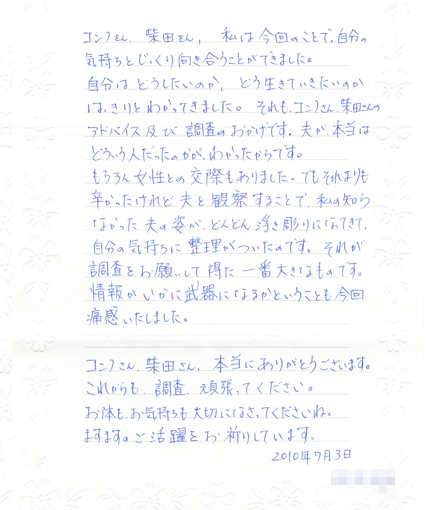 コンノさん、柴田さん、私は今回のことで、自分の
気持ちとじっくり向き合うことができました。
自分はどうしたいのか、どう生きていきたいのか
はっきりとわかってきました。それも、コンノさん、柴田さんの
アドバイス及び調査のおかげです。夫が、本当は
どういう人だったのかが、わかったからです。
もちろん女性との交際もありました。でもそれよりも
辛かったけれど夫を観察することで、私の知ら
なかった夫の姿が、どんどん浮き彫りになってきて、
自分の気持ちに整理がついたのです。それが
調査をお願いして得た一番大きなものです。
情報がいかに武器になるかということも今回
痛感いたしました。
コンノさん、柴田さん、本当にありがとうございます。
これからも、調査、頑張ってください。
お体も、お気持ちも大切になさってくださいね。
ますますのご活躍をお祈りしています、
2010年7月3日